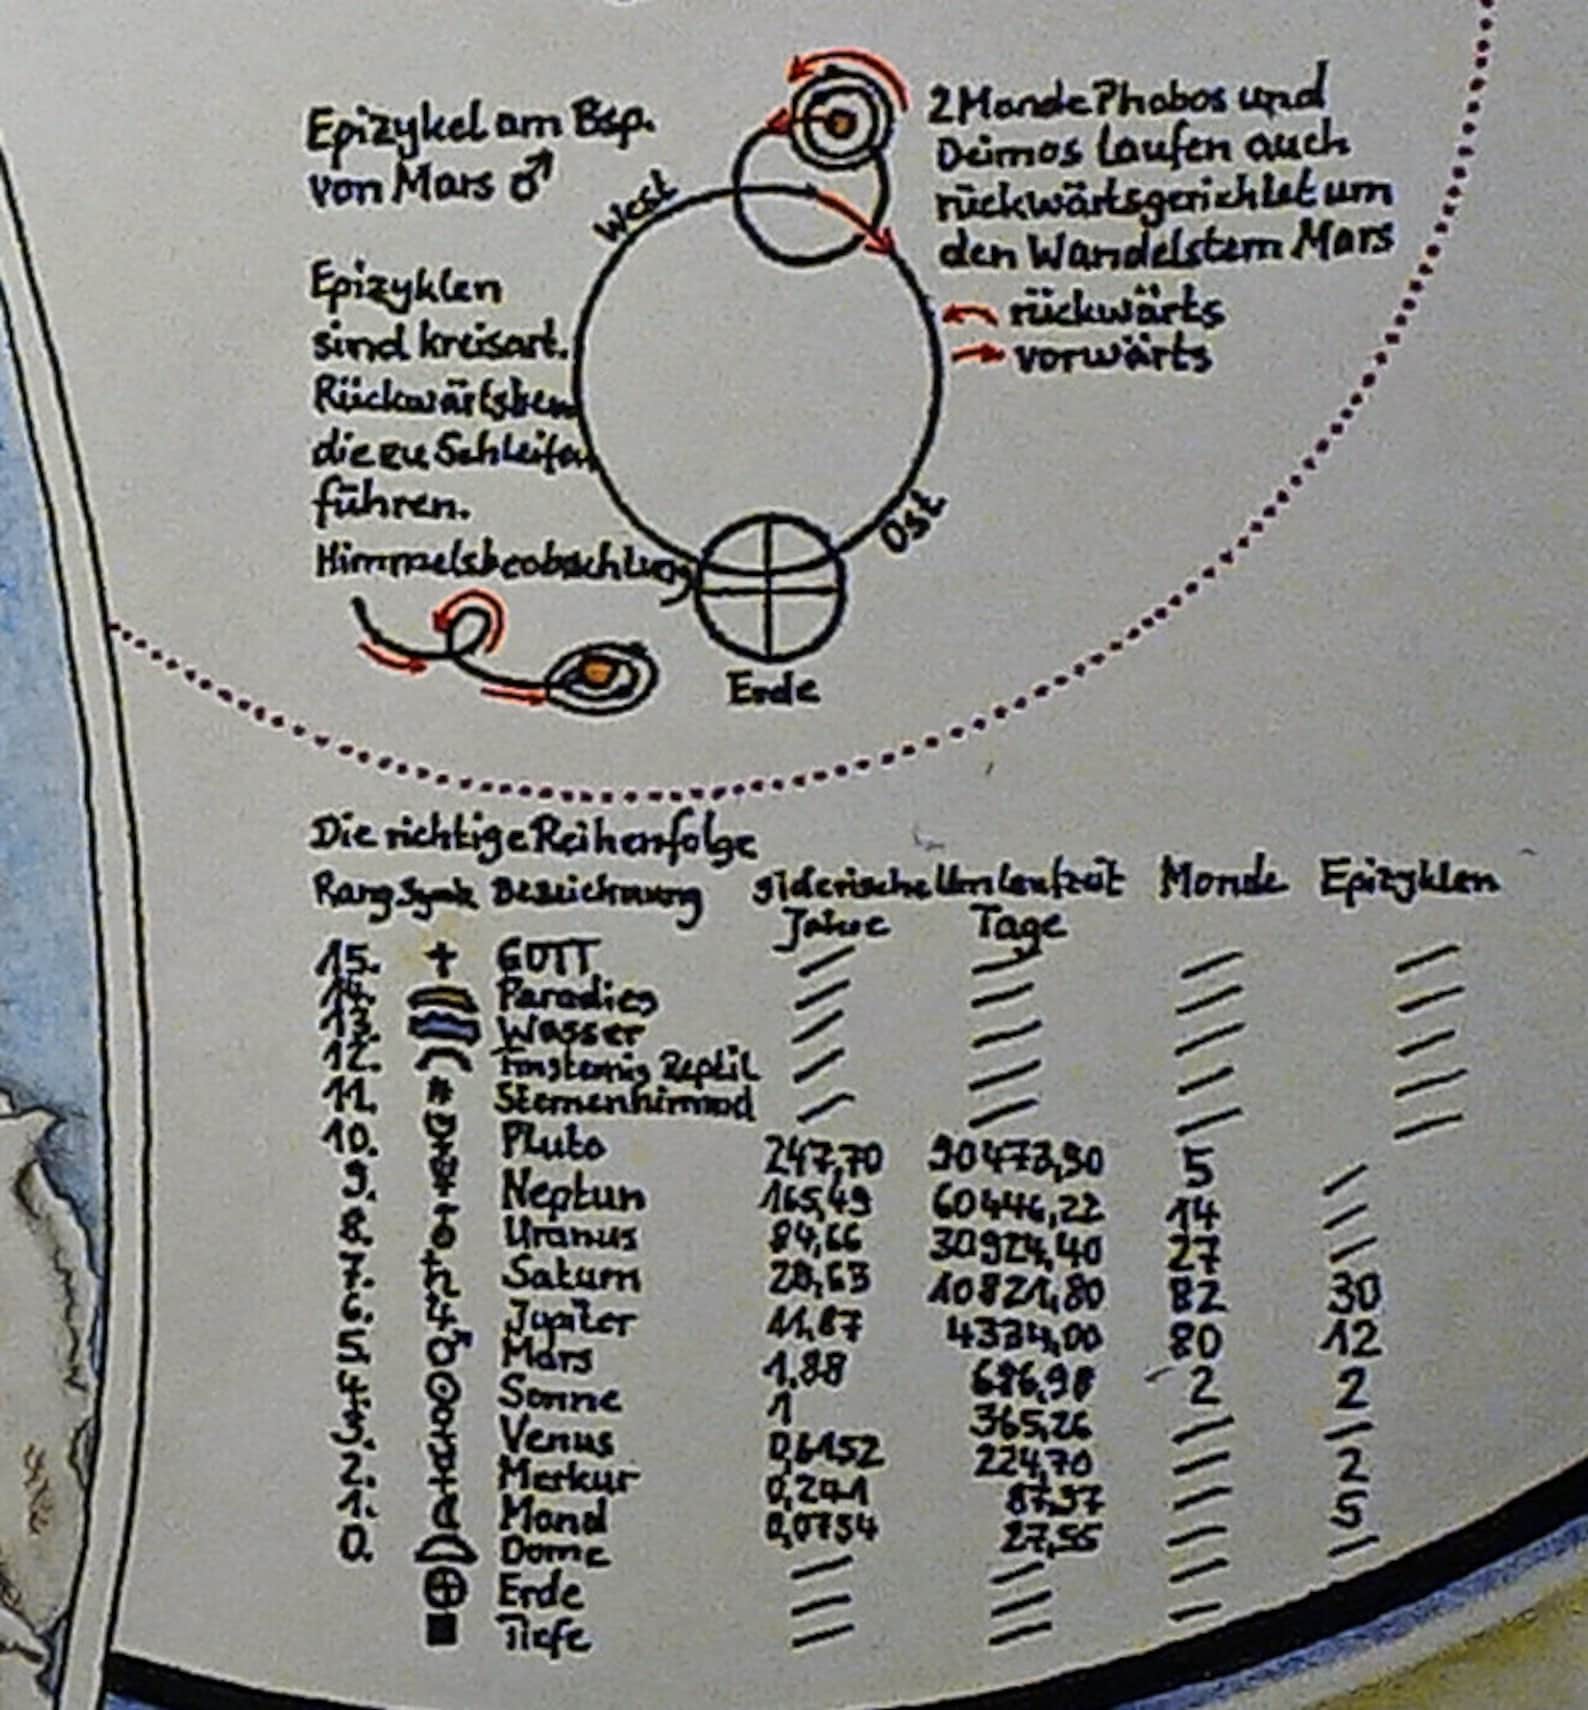 Epizykel am Bsp.
von Mars ♂
2 Monde Phobos und
Deimos laufen auch
rückwärtsgerichtet um
den Wandelstern Mars
West
Epizyklen
sind kreisart.
Rückwärtsbew
die zu Schleifen
führen.
Himmelsbeobachtung
rückwärts
vorwärts
Ost
Erde
Die richtige Reihenfolge
Rang Symb Bezeichnung siderische Umlaufzeit Monde Epizyklen
Jahre Tage
15. GOTT
14. Paradies
13. Wasser
12. Reptil
11. Sternenhimmel
10. Pluto 247,70 90473,90 5
9. Neptun 165,49 60446,22 14
8. Uranus 84,66 30924,40 27
7. Saturn 29,63 10821,80 82 30
6. Jupiter 11,87 4334,00 80 12
5. Mars 1,88 686,98 2 2
4. Sonne 1 365,26
3. Venus 0,6152 224,70 2
2. Merkur 0,241 87,97 5
1. Mond 0,0754 27,55
0. Dome
Erde
Tiefe